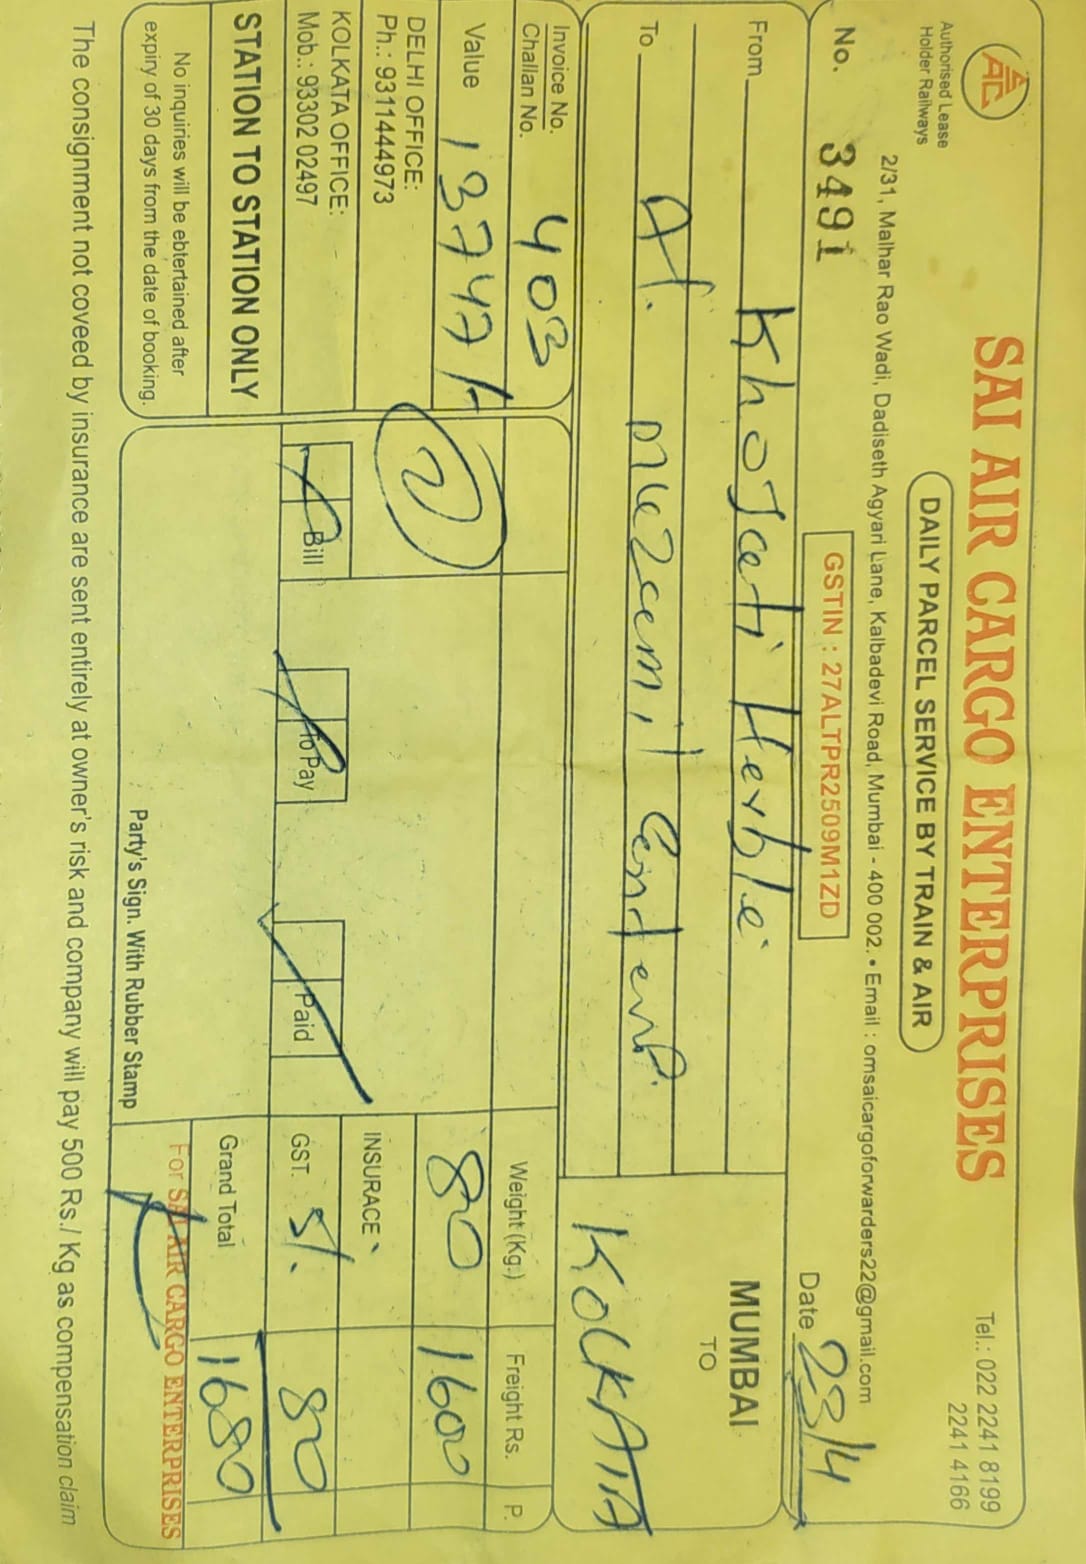 SAI AIR CARGO ENTERPRISES
Tel.: 022 2241 8199
2241 4166
Authorised Lease
Holder Railways
DAILY PARCEL SERVICE BY TRAIN & AIR
2/31, Malhar Rao Wadi, Dadiseth Agyari Lane, Kalbadevi Road, Mumbai - 400 002. • Email : omsaicargoforwarders22@gmail.com
No. 3491
GSTIN : 27ALTPR2509M1ZD
Date 23/4
From Khojati Herble
MUMBAI
TO
KOLKATTA
To At.
Invoice No.
Challan No. 403
Weight (Kg.)
Freight Rs.
P.
Value 13747/-
2
80
1600
DELHI OFFICE:
Ph.: 9311444973
INSURACE
KOLKATA OFFICE:
Mob.: 93302 02497
Bill
To Pay
Paid
GST. 5%.
80
STATION TO STATION ONLY
Grand Total
1680
No inquiries will be ebtertained after
expiry of 30 days from the date of booking.
Party's Sign. With Rubber Stamp
For SAI AIR CARGO ENTERPRISES
The consignment not coveed by insurance are sent entirely at owner's risk and company will pay 500 Rs./ Kg as compensation claim